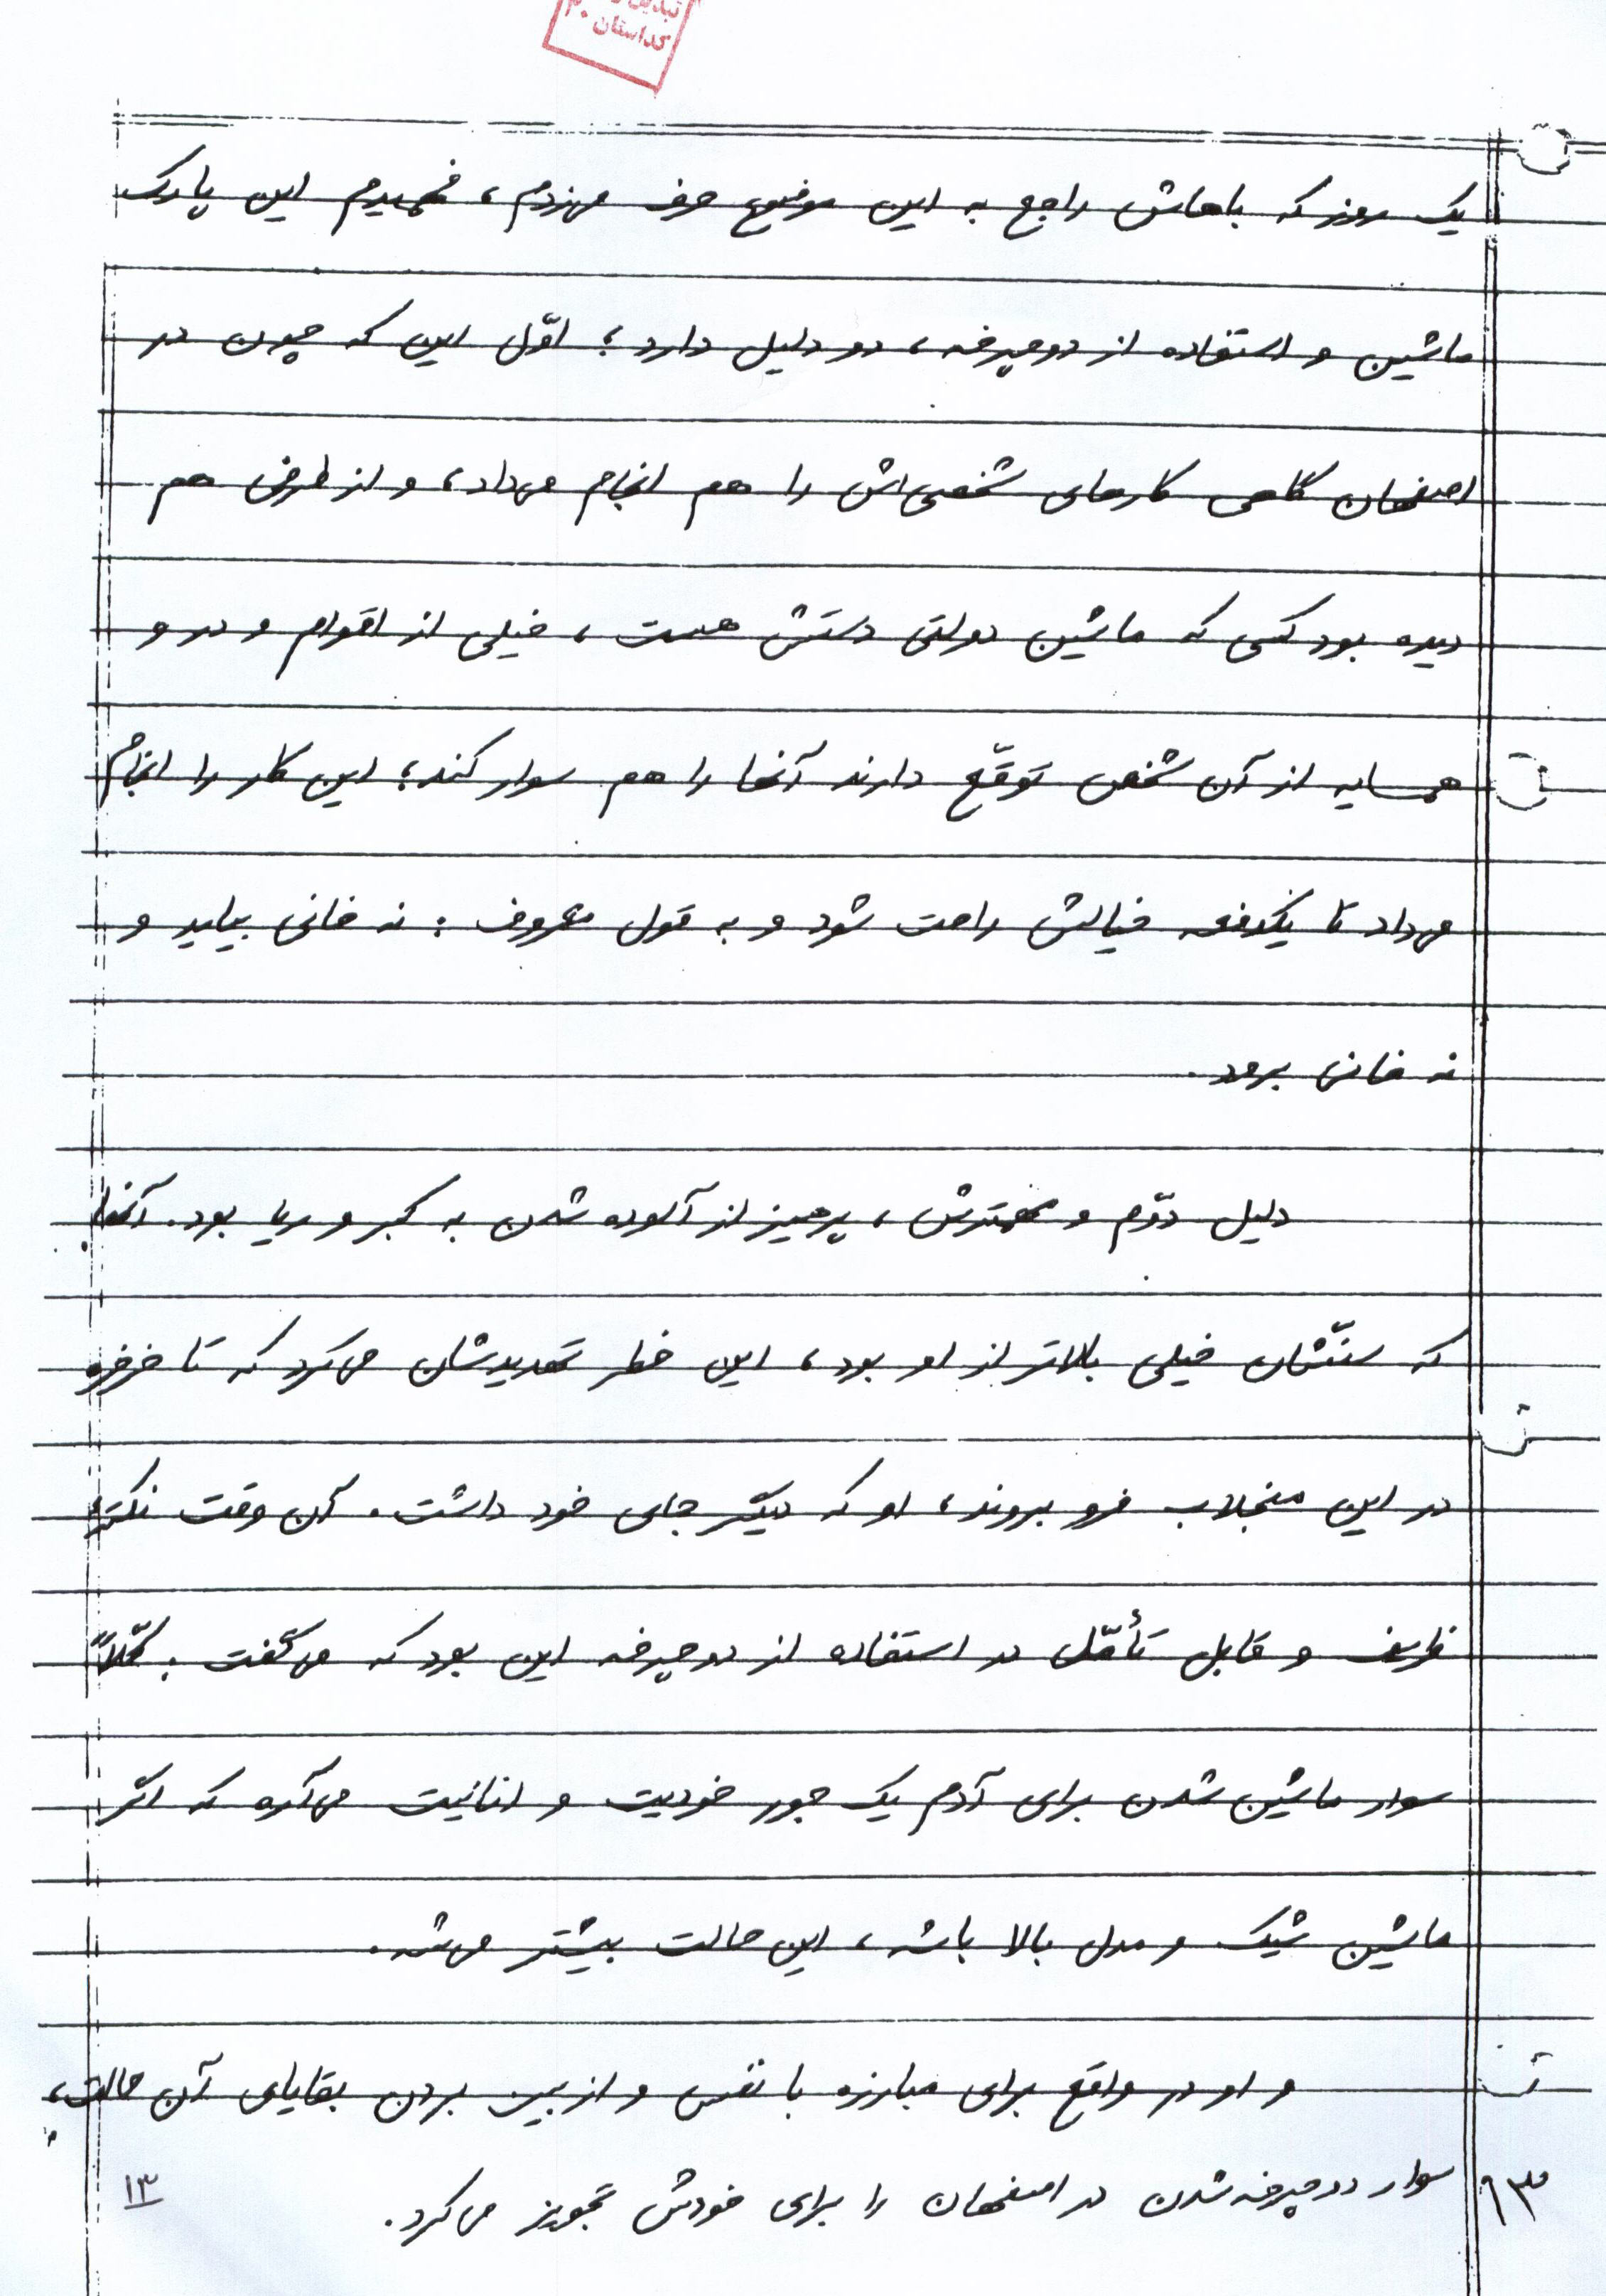 کداستان ۳۰
یک روز که باهاش راجع به این موضوع حرف میزدم، فهمیدم این پارک
ماشین و استفاده از دوچرخه، دو دلیل دارد؛ اوّل این که چون در
اصفهان گاهی کارهای شخصی‌اش را هم انجام می‌داد، و از طرفی هم
دیده بود کسی که ماشین دولتی دستش هست، خیلی از اقوام و در و
همسایه از آن شخص توقّع دارند آنها را هم سوار کند؛ این کار را انجام
می‌داد تا یکدفعه خیالش راحت شود و به قول معروف: نه خانی بیاید و
نه خانی برود.
دلیل دوّم و مهمترش، پرهیز از آلوده شدن به کبر و ریا بود. آنها
که سنّشان خیلی بالاتر از او بود، این خطر تهدیدشان می‌کرد که تا خرخره
در این منجلاب فرو بروند، او که دیگر جای خود داشت. آن وقت نکتهٔ
ظریف و قابل تأمّل در استفاده از دوچرخه این بود که می‌گفت: کلاً
سوار ماشین شدن برای آدم یک جور خودیت و انانیت می‌آره که اگر
ماشین شیک و مدل بالا باشه، این حالت بیشتر می‌شه.
و او در واقع برای مبارزه با نفس و از بین بردن بقایای آن حالت،
سوار دوچرخه شدن در اصفهان را برای خودش تجویز می‌کرد.
۱۳
۹۳